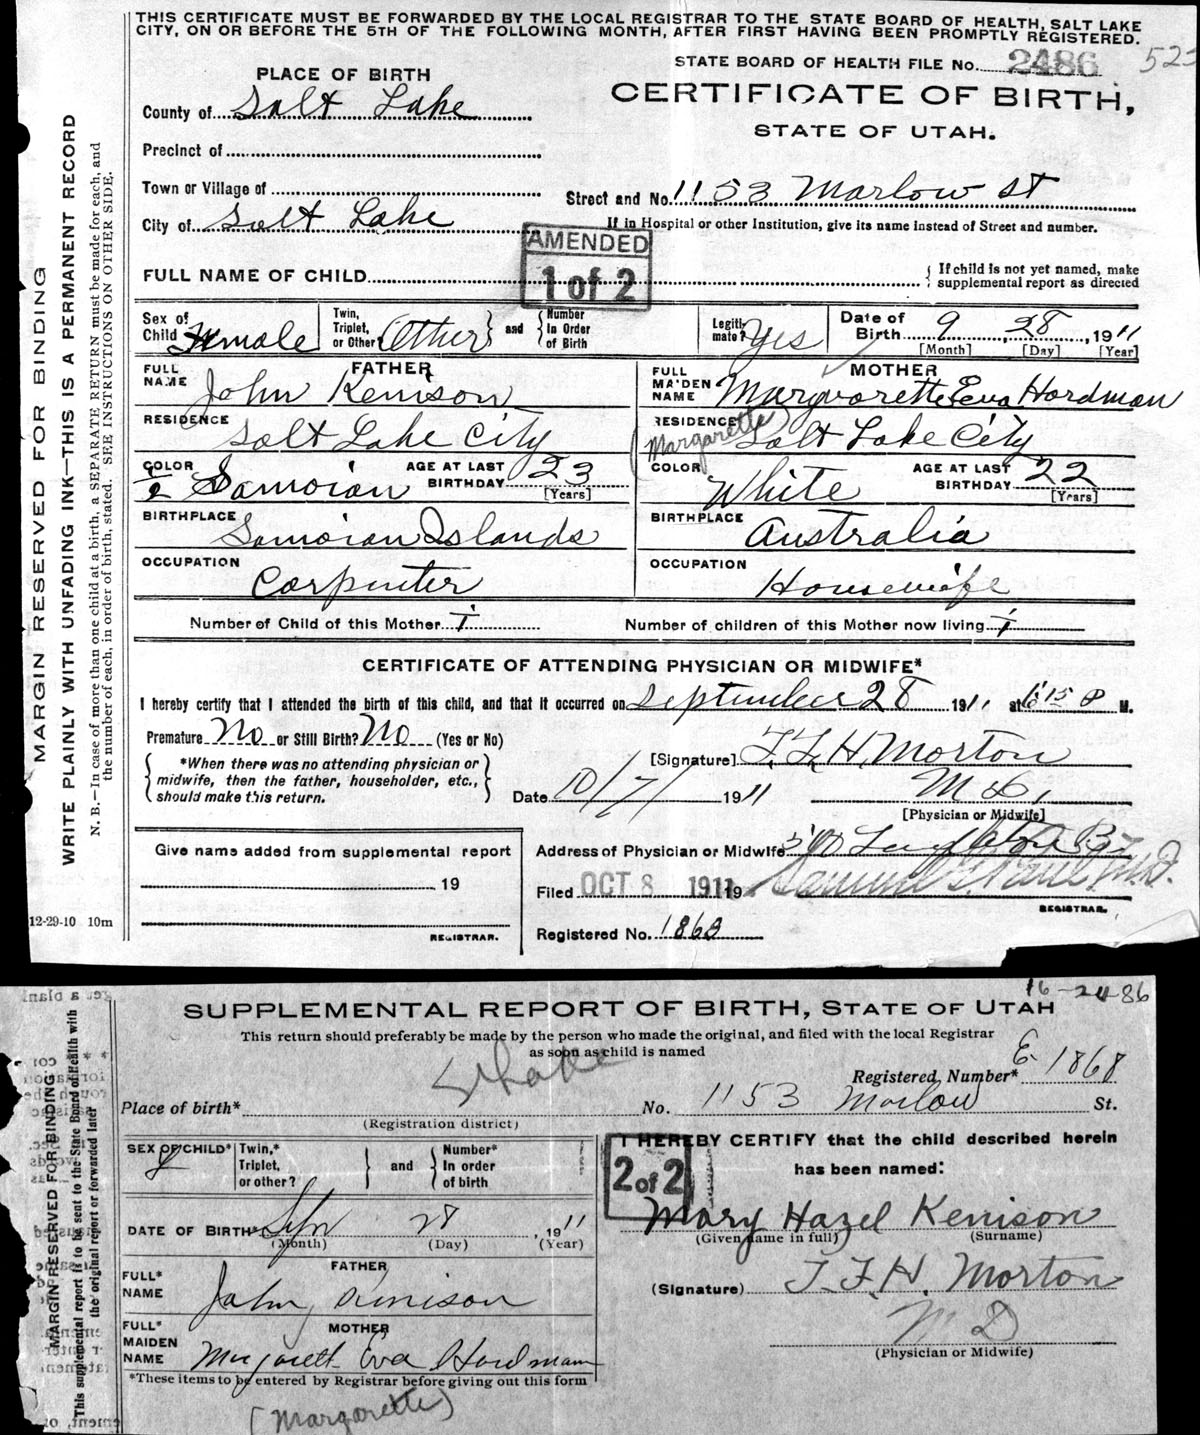 THIS CERTIFICATE MUST BE FORWARDED BY THE LOCAL REGISTRAR TO THE STATE BOARD OF HEALTH, SALT LAKE
CITY, ON OR BEFORE THE 5TH OF THE FOLLOWING MONTH, AFTER FIRST HAVING BEEN PROMPTLY REGISTERED.
STATE BOARD OF HEALTH FILE No. 2486 523
PLACE OF BIRTH
CERTIFICATE OF BIRTH,
STATE OF UTAH.
County of Salt Lake
Precinct of
Town or Village of
Street and No. 1153 Marlow St
City of Salt Lake
If in Hospital or other Institution, give its name instead of Street and number.
AMENDED
1 of 2
FULL NAME OF CHILD
If child is not yet named, make
supplemental report as directed
Sex of Child Female
Twin, Triplet, or Other (Other) and Number In Order of Birth
Legitimate? Yes
Date of Birth 9 28 1911
[Month] [Day] [Year]
FATHER
FULL NAME John Kenison
RESIDENCE Salt Lake City
COLOR 1/2 Samoian
AGE AT LAST BIRTHDAY 23
[Years]
BIRTHPLACE Samoian Islands
OCCUPATION Carpenter
MOTHER
FULL MAIDEN NAME Margvorette Eva Hordman
(Margarette)
RESIDENCE Salt Lake City
COLOR White
AGE AT LAST BIRTHDAY 22
[Years]
BIRTHPLACE Australia
OCCUPATION Housewife
Number of Child of this Mother 1
Number of children of this Mother now living 1
CERTIFICATE OF ATTENDING PHYSICIAN OR MIDWIFE*
I hereby certify that I attended the birth of this child, and that it occurred on September 28 1911, at 6:15 P M.
Premature No or Still Birth? No (Yes or No)
*When there was no attending physician or
midwife, then the father, householder, etc.,
should make this return.
[Signature] T. F. H. Morton
M D,
[Physician or Midwife]
Date 10/7/ 1911
Give name added from supplemental report
19
REGISTRAR.
Address of Physician or Midwife
Filed OCT 8 1911 19
REGISTRAR.
Registered No. 1868
12-29-10 10m
MARGIN RESERVED FOR BINDING
WRITE PLAINLY WITH UNFADING INK—THIS IS A PERMANENT RECORD
N. B.—In case of more than one child at a birth, a SEPARATE RETURN must be made for each, and
the number of each, in order of birth, stated. SEE INSTRUCTIONS ON OTHER SIDE.
16-24-86
SUPPLEMENTAL REPORT OF BIRTH, STATE OF UTAH
This return should preferably be made by the person who made the original, and filed with the local Registrar
as soon as child is named
Registered Number* E 1868
Place of birth*
(Registration district)
No. 1153 Marlow St.
SEX OF CHILD* f
Twin,* Triplet, or other? and Number* In order of birth
DATE OF BIRTH* Sep 28, 1911
(Month) (Day) (Year)
FATHER
FULL* NAME John Kenison
MOTHER
FULL* MAIDEN NAME Margarett Eva Hordmann
*These items to be entered by Registrar before giving out this form
(Margarette)
I HEREBY CERTIFY that the child described herein
has been named:
2 of 2
Mary Hazel Kenison
(Given name in full) (Surname)
(Signature) T. F. H. Morton
M D
(Physician or Midwife)
MARGIN RESERVED FOR BINDING
This supplemental report is to be sent to the State Board of Health with
the original report or forwarded later